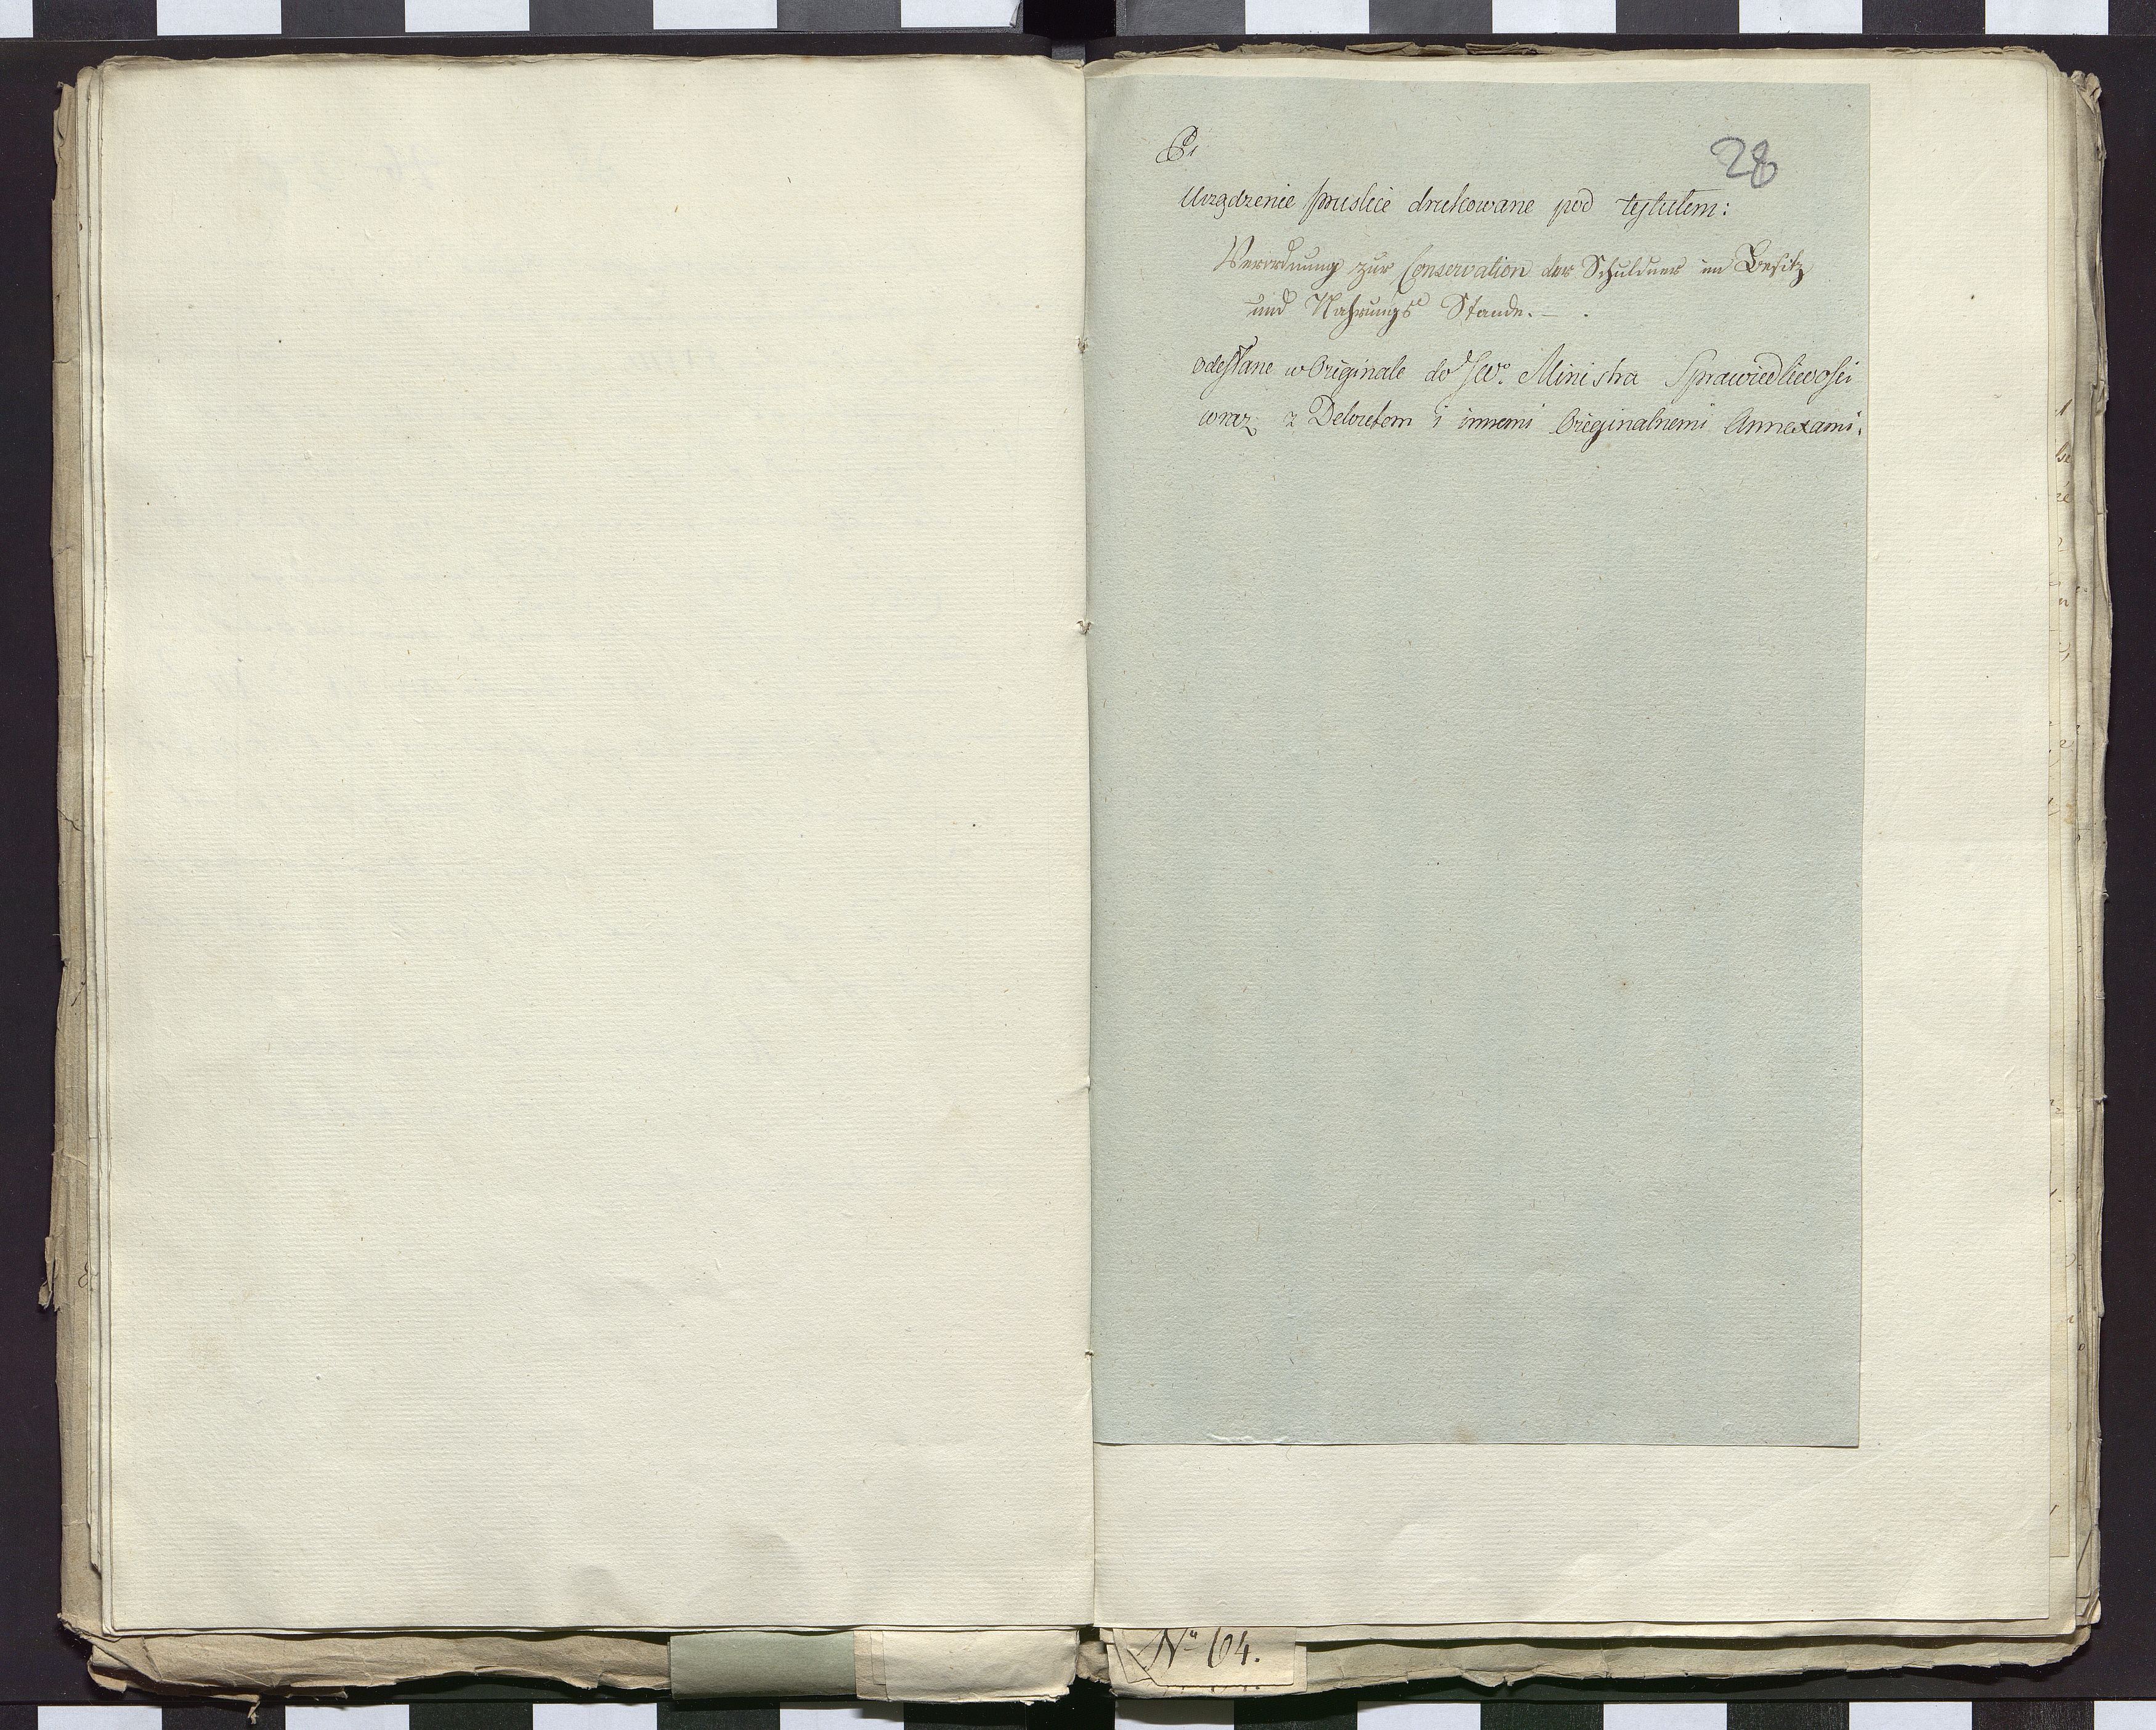 28
Urządzenie pruskie drukowane pod tytułem:
Verordnung zur Conservation der Schuldner im Besitz
und Nahrungs Stande. —
odesłane w Originale do JW. Ministra Sprawiedliwości
wraz z Dekretem i innemi Originalnemi Annexami.
No 64.